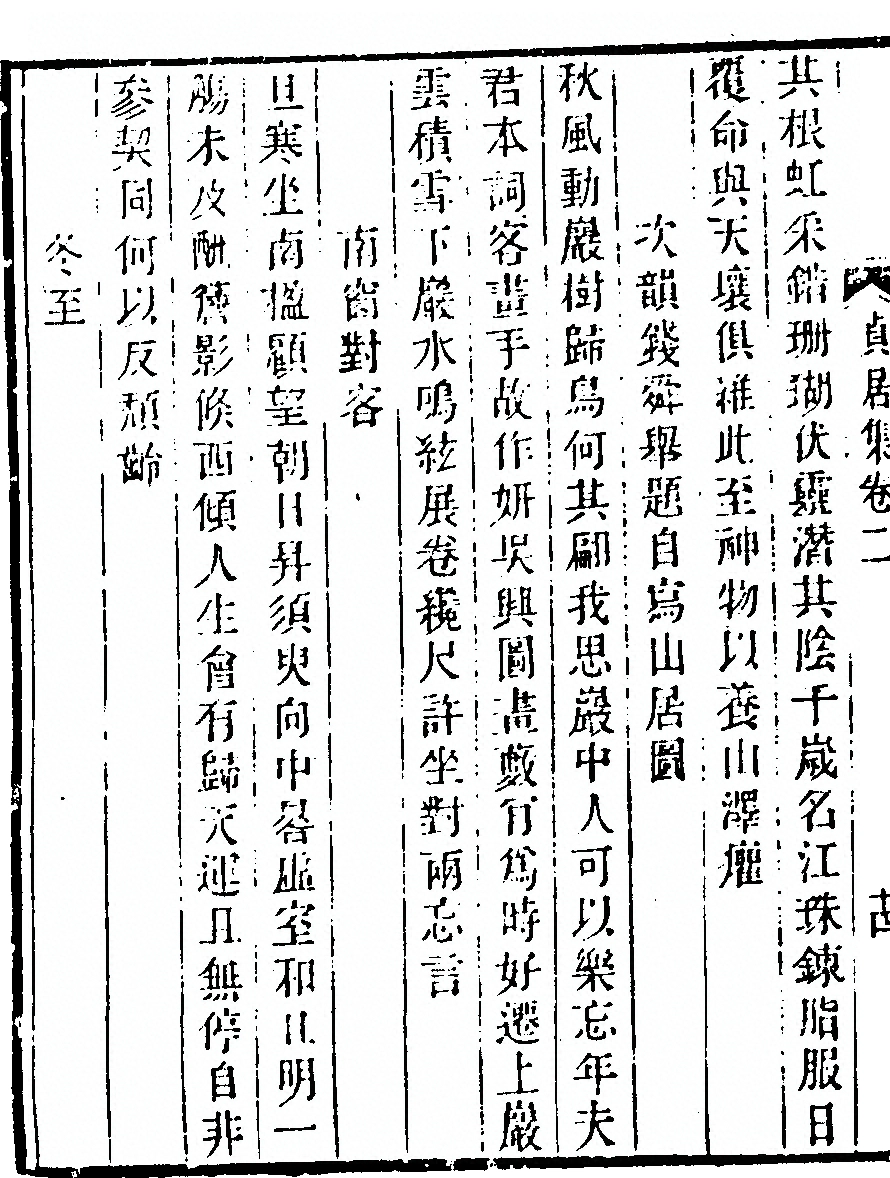 貞居集卷二
其根虹采錯珊瑚伏靈潛其陰千歲名江珠鍊脂服日
覆命與天壤俱雖此至神物以養山澤癯
次韻錢舜舉題自寫山居圖
秋風動巖樹歸鳥何其翩我思巖中人可以樂忘年夫
君本詞客畫手故作妍吳興圖畫藪有爲時好遷上巖
雲積雪下巖水鳴絃展卷纔尺許坐對兩忘言
南窗對客
旦寒坐南楹顧望朝日昇須臾向中晷虛室和且明一
觴未及酬隨影倏西傾人生會有歸天運且無停自非
參契同何以反頹齡
冬至